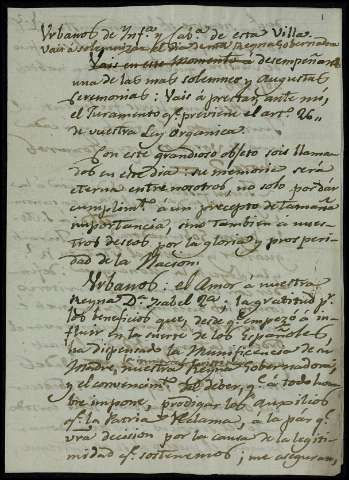 Urbanos de Ynf.ª y Cab.ª de esta Villa.
Vais á solemnizar el dia de nra Reyna Gobernadora
Vais en este momento á desempeñar
una de las mas solemnes y augustas
Ceremonias: Vais á prestar, ante mi,
el Juramento q.e previene el art.º
de vuestra Ley Organica.
Con este grandioso objeto sois llama-
dos en este dia: su memoria será
eterna entre nosotros, no solo por dar
cumplim.to á un precepto de tamaña
importancia, sino tambien á nues-
tros deseos por la gloria y prosperi-
dad de la Nacion.
Urbanos: el Amor a nuestra
Reyna D.ª Ysabel 2.ª; la gratitud p.r
los beneficios que, desde q.e empezó á in-
fluir en la suerte de los Españoles,
ha dispensado la Munificencia de su
Madre, nuestra Reyna Gobernadora,
y el convencim.to del deber, q.e á todo hom-
bre impone, prodigar los Auxilios
q.e la Patria reclama, á la par q.e
vra decision por la causa de la legiti-
midad q.e sostenemos; me aseguran,